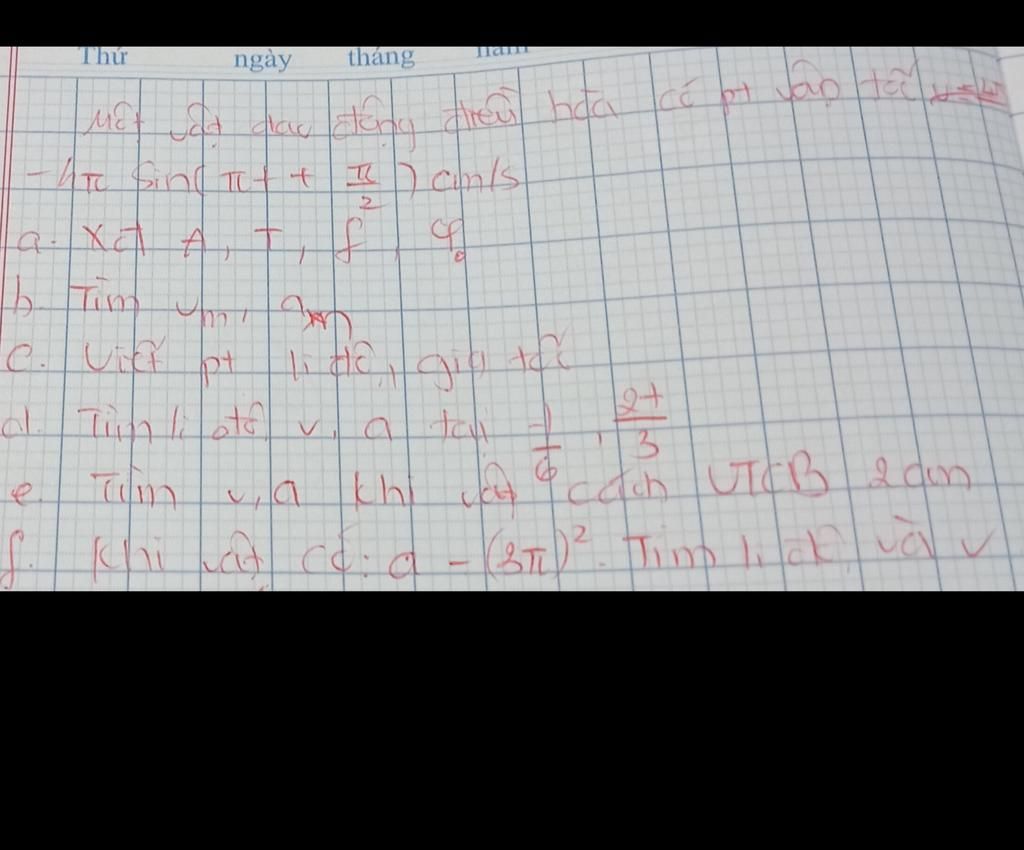 Thứ ngày tháng năm
Một vật dao động điều hòa có pt vận tốc
-4π sin(πt + π/2) cm/s
a. Xđ A, T, f, φ₀
b. Tìm vm, am
c. Viết pt li độ, gia tốc
d. Tìm li độ, v, a tại , 2t/3
e. Tìm v, a khi vật cách VTCB 2cm
f. Khi vật có: a - (3π)². Tìm li độ và v